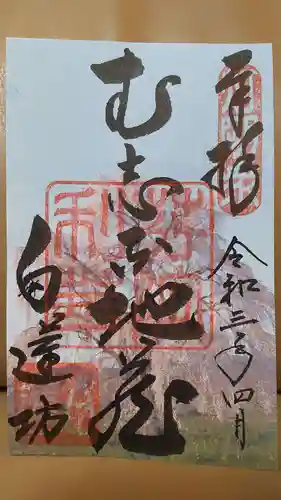 奉拝
令和三年四月
むし歯地蔵
白蓮坊